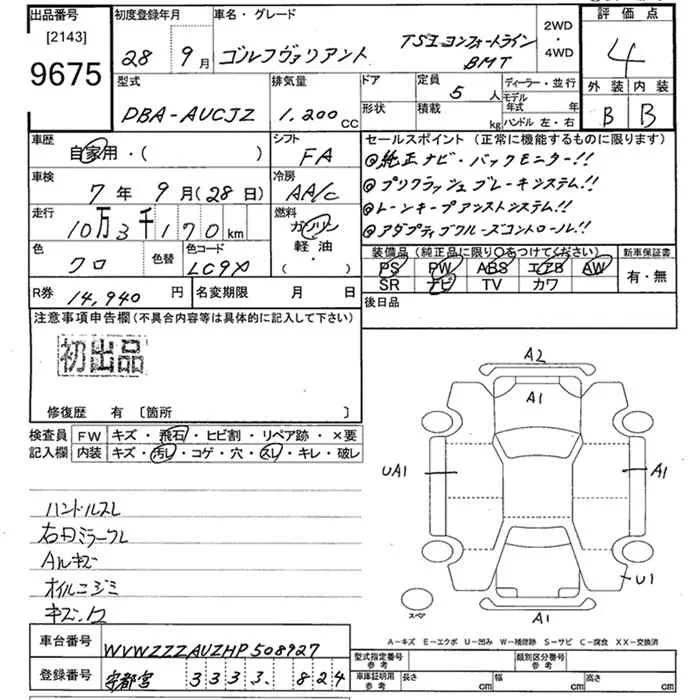 出品番号
[2143]
9675
初度登録年月
28 9月
車名・グレード
ゴルフヴァリアント TSIコンフォートライン
BMT
2WD
・
4WD
評価点
4
外装 内装
B B
型式
DBA-AUCJZ
排気量
1,200 CC
ドア
形状
定員
5人
積載
kg
ディーラー・並行
モデル
年式 年
ハンドル 左・右
車歴
自家用・( )
シフト
FA
車検
7年 9月(28日)
冷房
AA/C
走行
10万3千170km
燃料
ガソリン
軽油
・
( )
色
クロ
色替
色コード
LC9X
R券
14,940円
名変期限 月 日
セールスポイント(正常に機能するものに限ります)
◎純正ナビ・バックモニター!!
◎プリクラッシュブレーキシステム!!
◎レーンキープアシストシステム!!
◎アダプティブクルーズコントロール!!
装備品(純正品に限り○をつけてください)
PS PW ABS エアB AW
SR ナビ TV カワ
新車保証書
有・無
後日品
注意事項申告欄(不具合内容等は具体的に記入して下さい)
初出品
修復歴 有 [箇所 ]
検査員
記入欄
FW キズ・飛石・ヒビ割・リペア跡・×要
内装 キズ・汚レ・コゲ・穴・スレ・キレ・破レ
ハンドルスレ
右ドミラースレ
Aルキズ
オイルニジミ
A2
A1
UA1
A1
U1
A1
スペア
A-キズ E-エクボ U-凹み W-補修跡 S-サビ C-腐食 XX-交換済
車台番号
WVWZZZAUZHP508927
登録番号
宇都宮 333 824
型式指定番号
参考
類別区分番号
参考
車庫証明用
参考
長さ cm
幅 cm
高さ cm